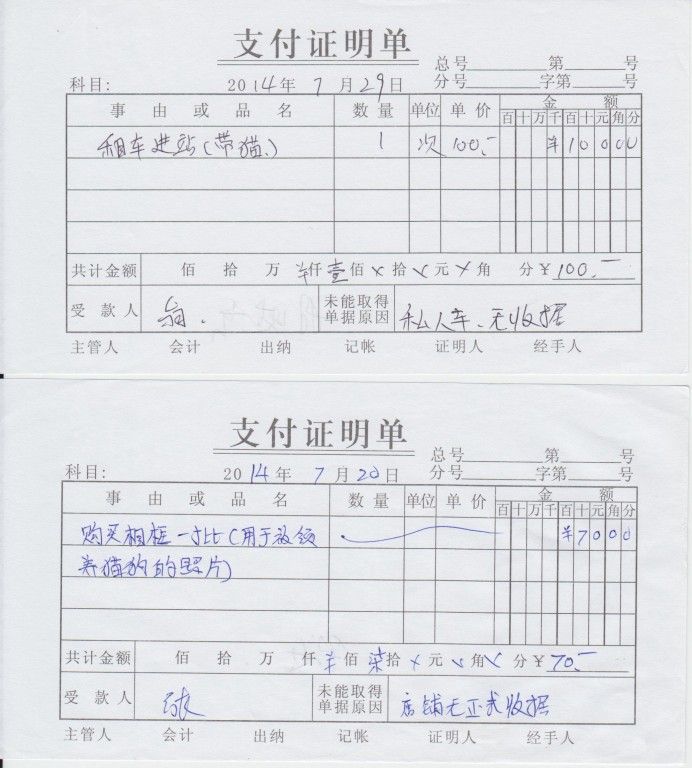 支付证明单
总号 第 号
科目: 2014年 7月29日 分号 字第 号
事由或品名 数量 单位 单价 金额
百十万千百十元角分
租车进站(带猫、) 1 次 100.- ¥10000
共计金额 佰 拾 万 ¥仟壹佰×拾×元×角 分¥100.-
受款人 未能取得单据原因 私人车、无收据
主管人 会计 出纳 记帐 证明人 经手人
支付证明单
总号 第 号
科目: 2014年 7月20日 分号 字第 号
事由或品名 数量 单位 单价 金额
百十万千百十元角分
购买相框一批(用于被领 ¥7000
养猫狗的照片)
共计金额 佰 拾 万 仟¥佰柒拾×元×角× 分¥70.-
受款人 未能取得单据原因 店铺无正式收据
主管人 会计 出纳 记帐 证明人 经手人